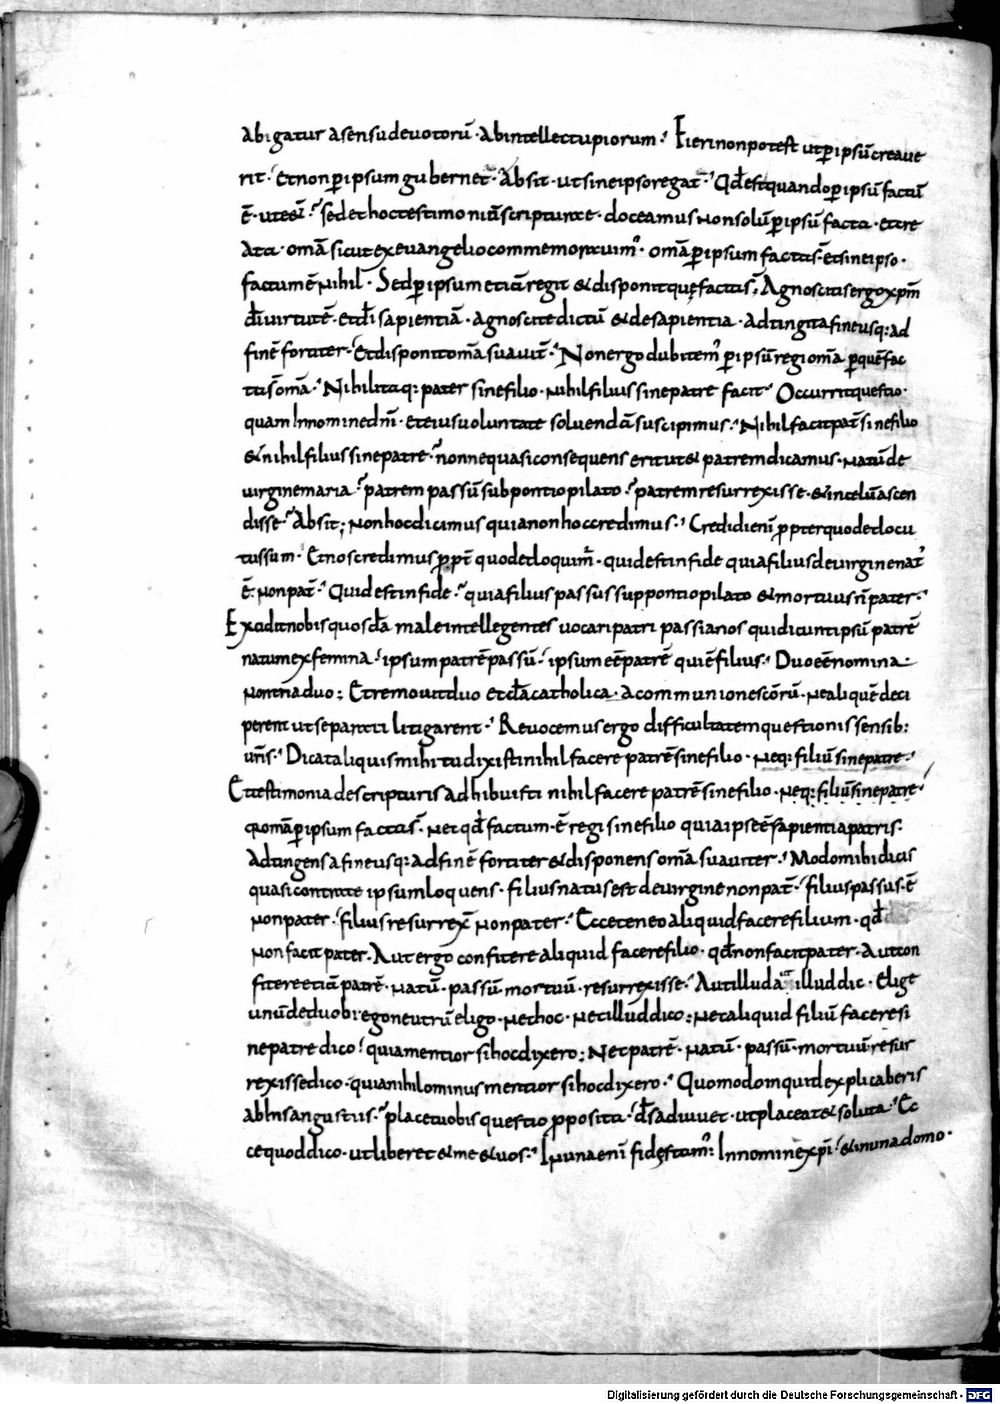 abigatur asensu deuotorū · abintellectu piorum · Fieri non potest ut ꝑ ipsū creaue
rit · Et non ꝑ ipsum gubernet · Absit · ut sine ipso regat · Qd̄ est quando ꝑ ipsū factū
ē · ut ee · sed et hoc testimoniū scripturae · doceamus non solū ꝑ ipsū facta · et cre
ata · omā sicut ex euangelio commemorauimꝰ · omā ꝑ ipsum facta s̄ · et sine ipso ·
factum ē nihil · Sed ꝑ ipsum etiā regit & disponit quę facta s̄ · Agnoscitis ergo xp̄m
dī uirtutē · et dī sapientiā · agnoscite dictū & de sapientia · adtingit a fine usq: ad
finē fortiter · Et disponit omā suauit̄ · Non ergo dubitemꝰ ꝑ ipsū regi omā ꝑ quē fac
ta s̄ omā · Nihil itaq: pater sine filio · nihil filius sine patre facit · Occurrit questio ·
quam In nomine dn̄i · et eius uoluntate soluendā suscipimus · Nihil facit pat̄ sine filio
& nihil filius sine patre · nonne quasi consequens erit ut & patrem dicamus · natū de
uirgine maria · patrem passū sub pontio pilato · patrem resurrexisse · & in celū ascen
disse · Absit; non hoc dicimus quia non hoc credimus · Credidi enī ꝓpter quod et locu
tus sum · Et nos credimus ꝓpt̄ quod et loquimr̄ · quid est in fide quia filius de uirgine natꝰ
ē · non pat̄ · Quid est in fide · quia filius passus sub pontio pilato & mortuus n̄ pater ·
Excidit nobis quosdā male intellegentes uocari patripassianos qui dicunt ipsū patrē
natum ex femina · ipsum patrē passū · ipsum eē patrē qui ē filius · Duo eē nomina
non tria duo; Et remouit duo et d̄a catholica · a communione scōrū · ne aliquē deci
perent ut separati litigarent · Reuocemus ergo difficultatem questionis sensib:
ur̄is · Dicat aliquis mihi tu dixisti nihil facere patrē sine filio · neq: filiū sine patre ·
Et testimonia de scripturis adhibuisti nihil facere patrē sine filio · neq: filiū sine patre
qr omā ꝑ ipsum facta s̄ · nec qd̄ factum · ē regi sine filio quia ipse ē sapientia patris ·
Adtingens a fine usq: ad finē fortiter & disponens omā suauiter · Modo mihi dicis
quasi contrate ipsum loquens · filius natus est de uirgine non pat̄ · filius passus · ē
non pater · filius resurrex̄ non pater · Ecce teneo aliquid facere filium · qd̄
non facit pater · Aut ergo confitere aliquid facere filio · qd̄ non facit pater · Aut con
fitere etiā patrē · natū · passū mortuū · resurrexisse · Aut illud aut illud dic · Elige
unū de duob: ego neutrū eligo · nec hoc · nec illud dico; nec aliquid filiū facere si
ne patre dico · quia mentior si hoc dixero; Nec patrē · natū · passū · mortuū resur
rexisse dico · quia nihilominus mentior si hoc dixero · Quomodo inquid explicaberis
ab his angustiis · placet uobis questio ꝓposita · d̄s adiuuet · ut placeat & soluta · Ec
ce quod dico · ut liberet & me & uos · In una enī fide stamꝰ · In nomine xp̄i · & in una domo ·
Digitalisierung gefördert durch die Deutsche Forschungsgemeinschaft - DFG